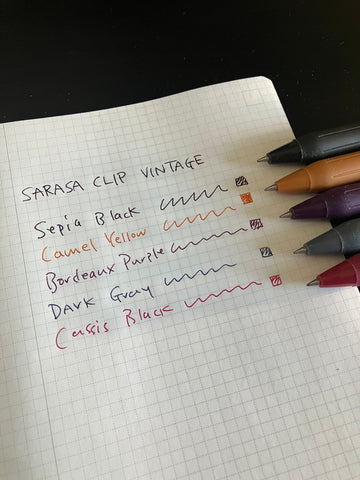 SARASA CLIP VINTAGE
Sepia Black
Camel Yellow
Bordeaux Purple
Dark Gray
Cassis Black